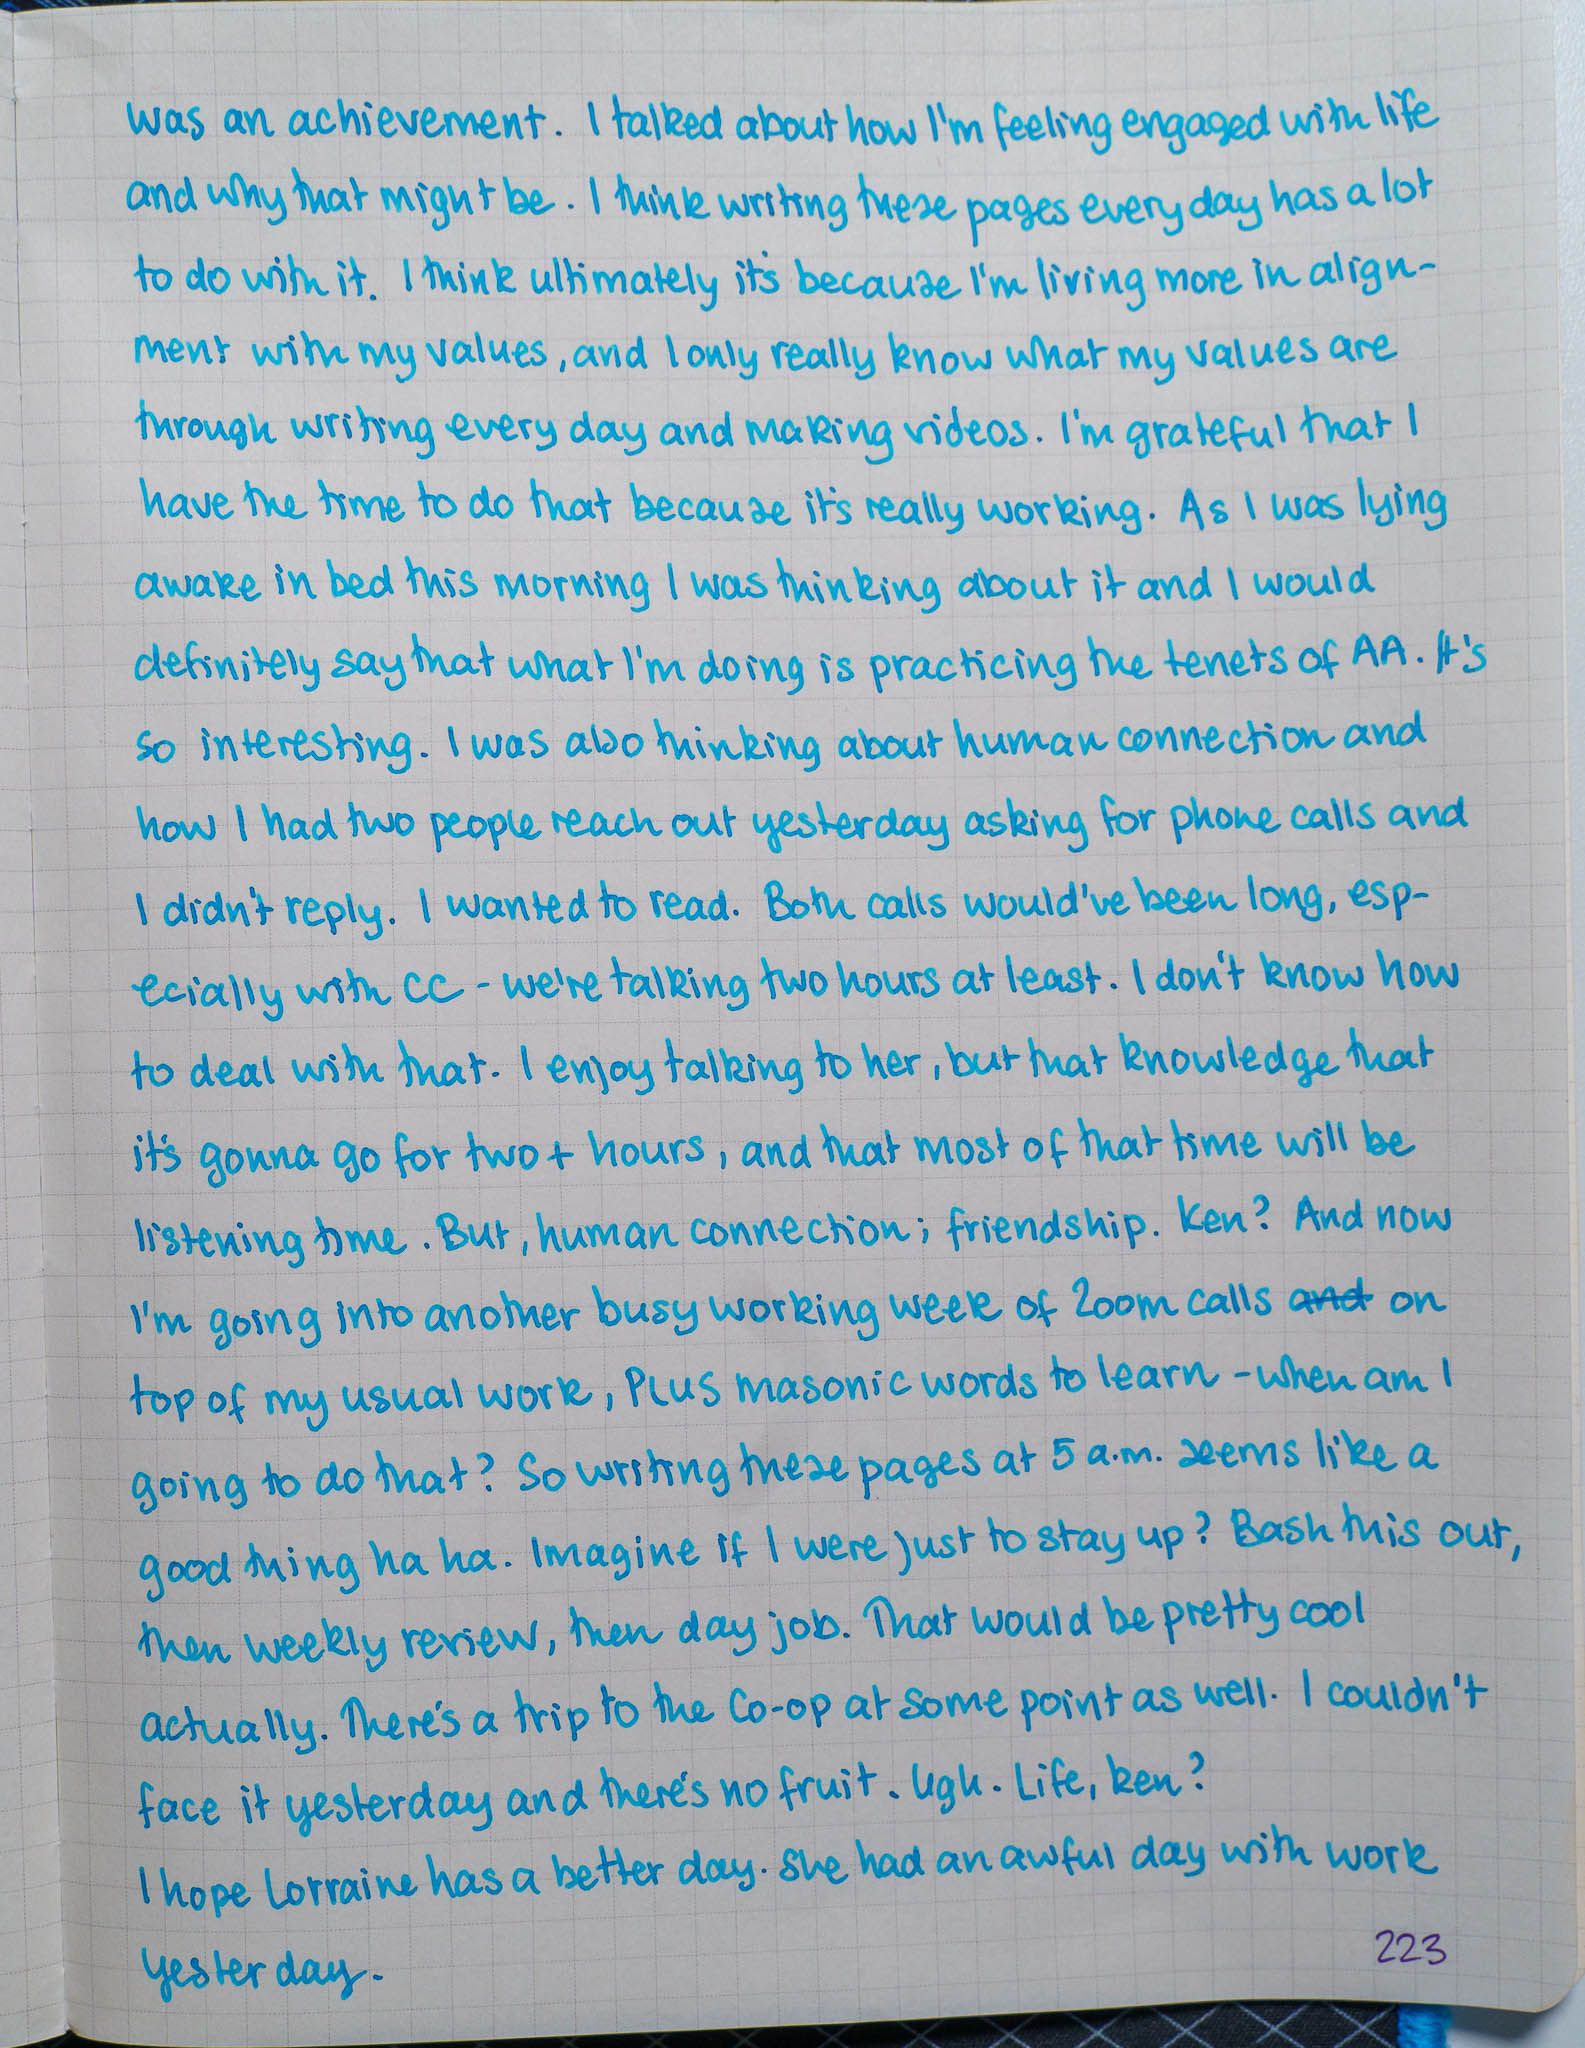 was an achievement. I talked about how I'm feeling engaged with life
and why that might be. I think writing these pages every day has a lot
to do with it. I think ultimately it's because I'm living more in align-
ment with my values, and I only really know what my values are
through writing every day and making videos. I'm grateful that I
have the time to do that because it's really working. As I was lying
awake in bed this morning I was thinking about it and I would
definitely say that what I'm doing is practicing the tenets of AA. It's
so interesting. I was also thinking about human connection and
how I had two people reach out yesterday asking for phone calls and
I didn't reply. I wanted to read. Both calls would've been long, esp-
ecially with CC - we're talking two hours at least. I don't know how
to deal with that. I enjoy talking to her, but that knowledge that
it's gonna go for two + hours, and that most of that time will be
listening time. But, human connection; friendship. Ken? And now
I'm going into another busy working week of Zoom calls and on
top of my usual work, PLUS masonic words to learn - when am I
going to do that? So writing these pages at 5 a.m. seems like a
good thing ha ha. Imagine if I were just to stay up? Bash this out,
then weekly review, then day job. That would be pretty cool
actually. There's a trip to the Co-op at some point as well. I couldn't
face it yesterday and there's no fruit. Ugh. Life, ken?
I hope Lorraine has a better day. She had an awful day with work
yesterday.
223